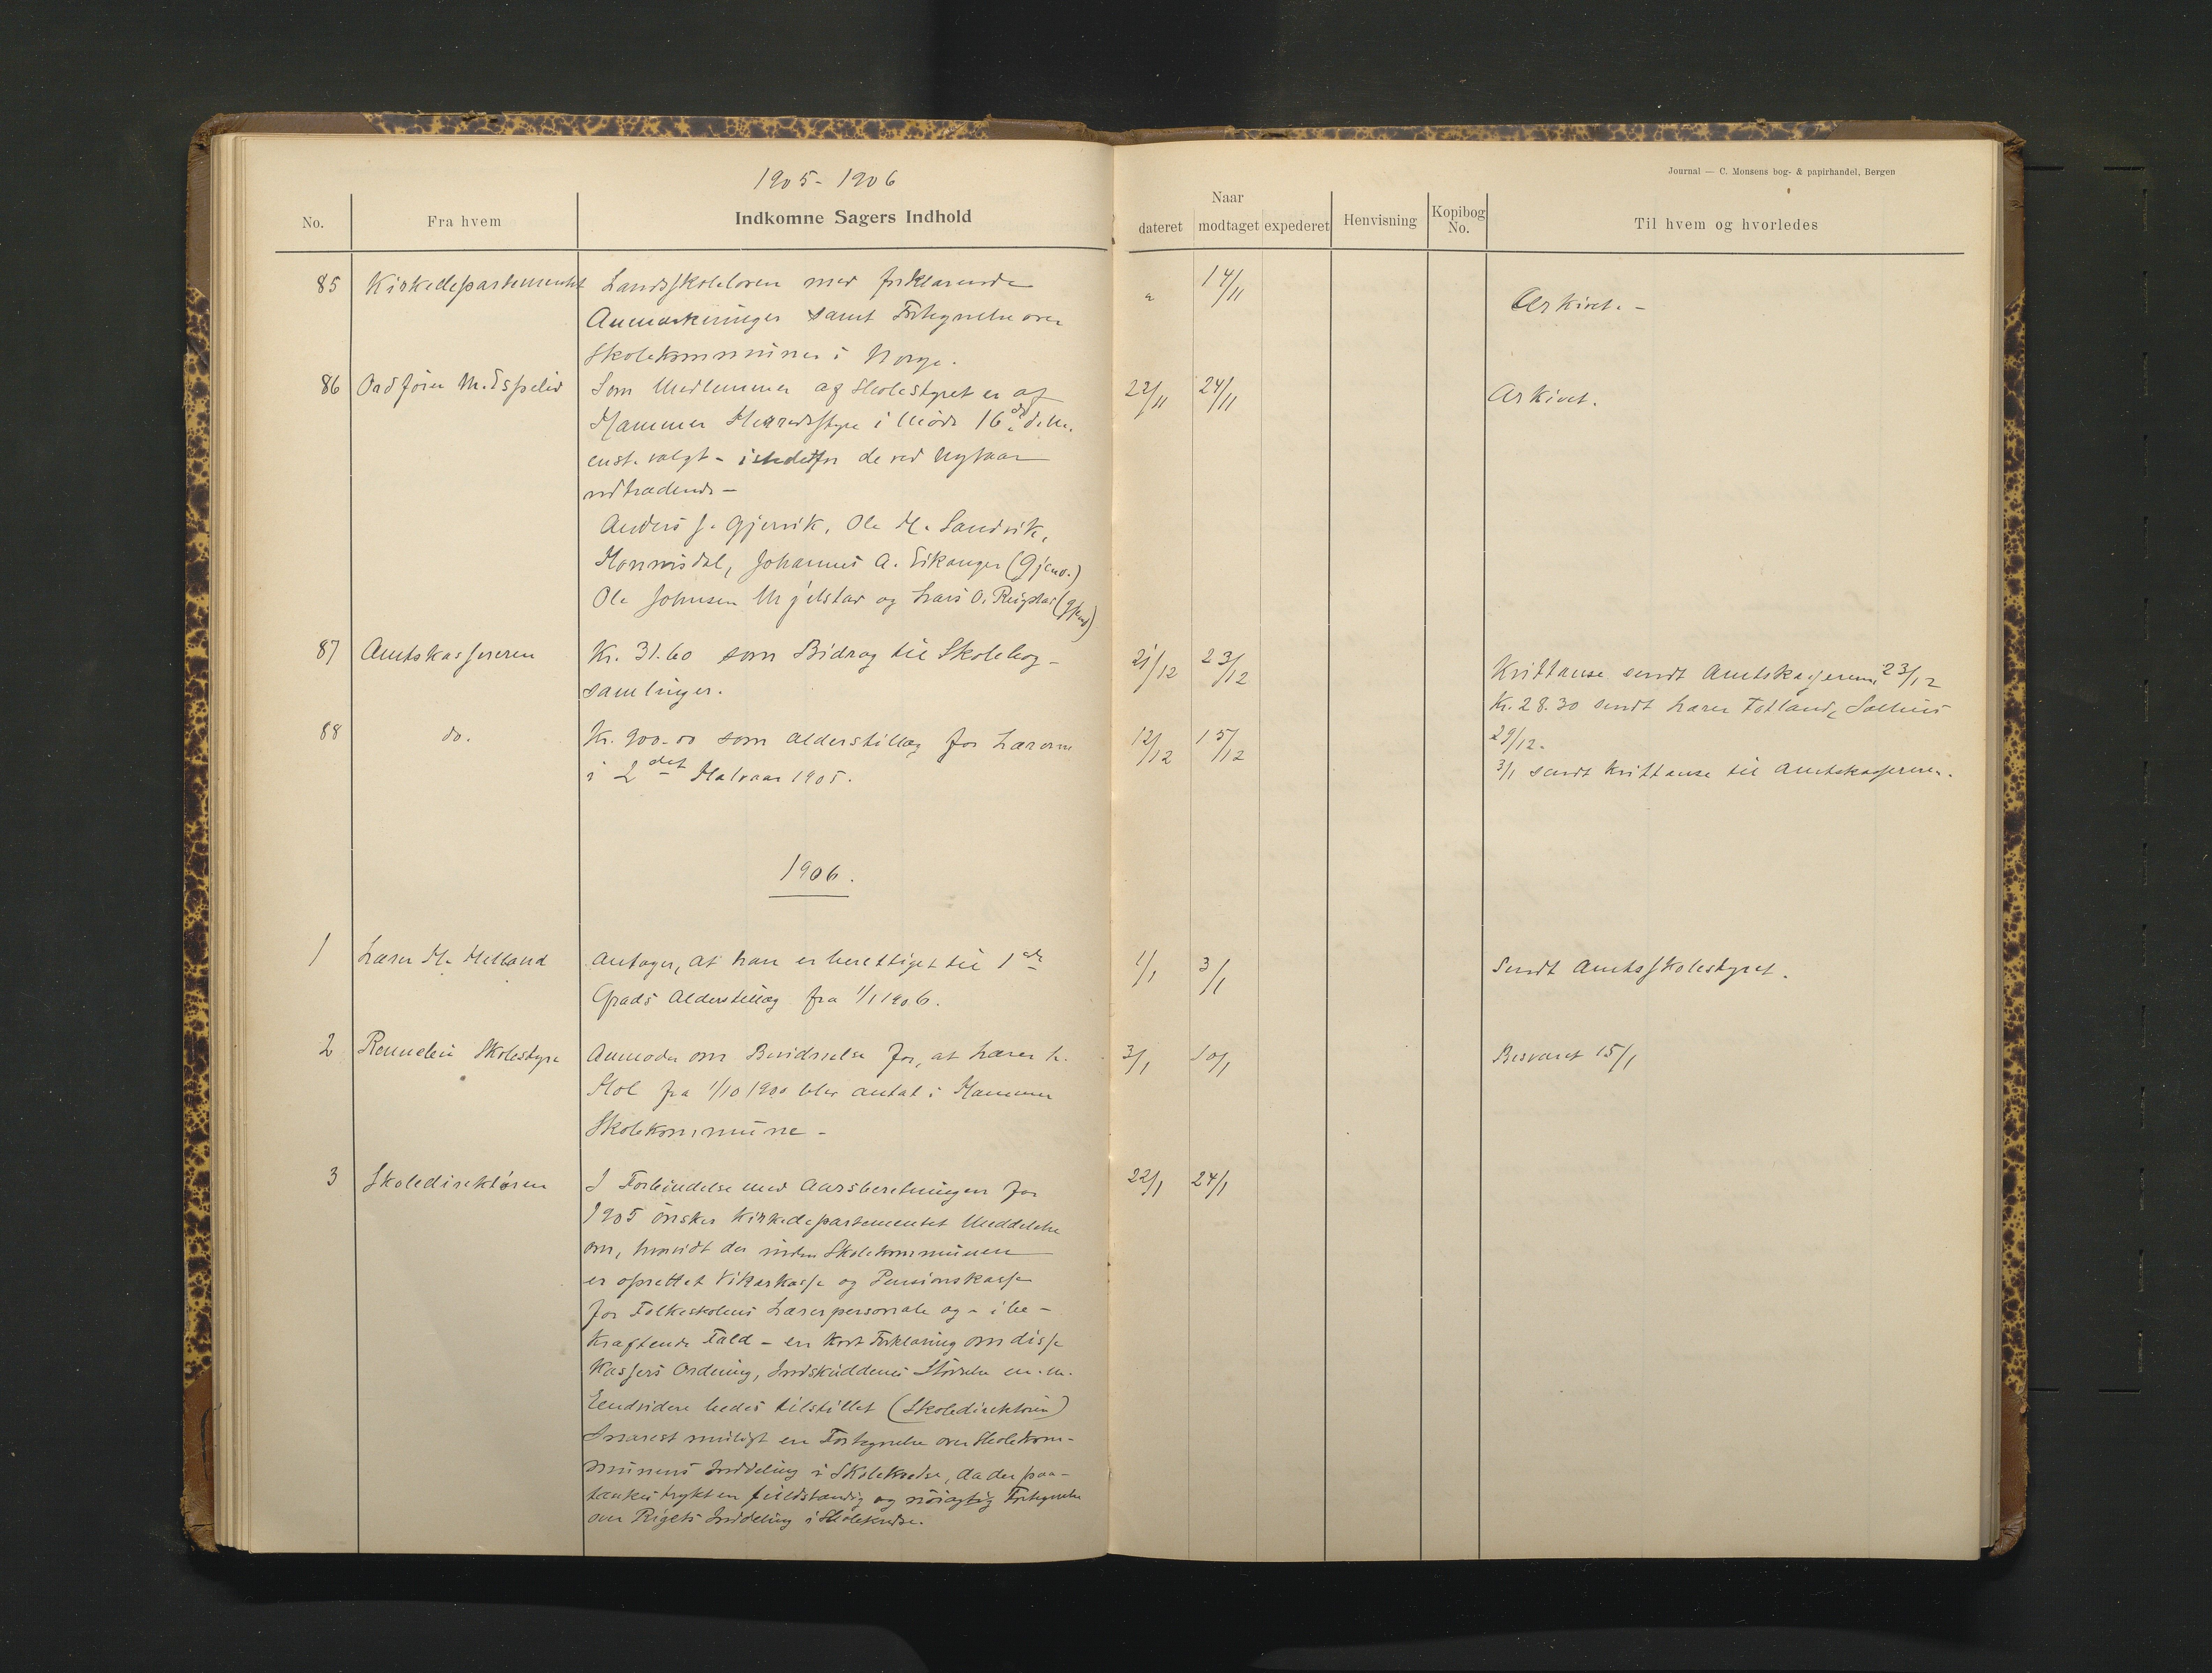 1905-1906
Journal — C. Monsens bog- & papirhandel, Bergen
No.
Fra hvem
Indkomne Sagers Indhold
Naar
dateret
modtaget
expederet
Henvisning
Kopibog
No.
Til hvem og hvorledes
85 Kirkedepartementet Landsskoleloven med forklarende
Anmærkninger samt Fortegnelse over
Skolekommuner i Norge.
"
14/11
Arkivet. -
86 Ordfører M. Espelid Som Medlemmer af Skolestyret er af
Hammer Herredsstyre i Møde 16de d.M.
enst. valgt - istedetfor de ved Nytaar
udtrædende -
Anders J. Gjervik, Ole H. Sandvik,
Honnisdal, Johannes A. Eikanger (Gjenv.)
Ole Johnsen Mjelstad og Lars O. Reigstad (gjenv)
22/11
24/11
Arkivet.
87 Amtskassereren Kr. 31.60 som Bidrag til Skolebog-
samlinger.
21/12
23/12
Kvittanse sendt Amtskassereren 23/12
Kr. 28.30 sendt Lærer Totland, Salhus
29/12.
88 do. Kr. 900.00 som Alderstillæg for Lærerne
i 2det Halvaar 1905.
12/12
15/12
3/1 sendt Kvittanse til Amtskassereren.
1906.
1 Lærer H. Helland Antager, at han er berettiget til 1ste
Grads Alderstillæg fra 1/1 1906.
1/1
3/1
Sendt Amtsskolestyret.
2 Skolestyre Anmoder om Bevidnelse for, at Lærer
Hol fra 1/10 1900 blev antat i Hammer
Skolekommune -
3/1
10/1
Besvaret 15/1
3 Skoledirektøren I Forbindelse med Aarsberetningen for
1905 ønsker Kirkedepartementet Meddelelse
om, hvorvidt der inden Skolekommunen
er oprettet Vikarkasse og Pensionskasse
for Folkeskolens Lærerpersonale og - i be-
kræftende Fald - en kort Forklaring om disse
Kassers Ordning, Indskuddenes Størrelse m.m.
Endvidere bedes tilstillet (Skoledirektøren)
snarest muligt en Fortegnelse over Skolekom-
munens Inddeling i Skolekredse, da der paa-
tænkes trykt en fuldstændig og nøiagtig Fortegnelse
over Rigets Inddeling i Skolekredse.
22/1
24/1